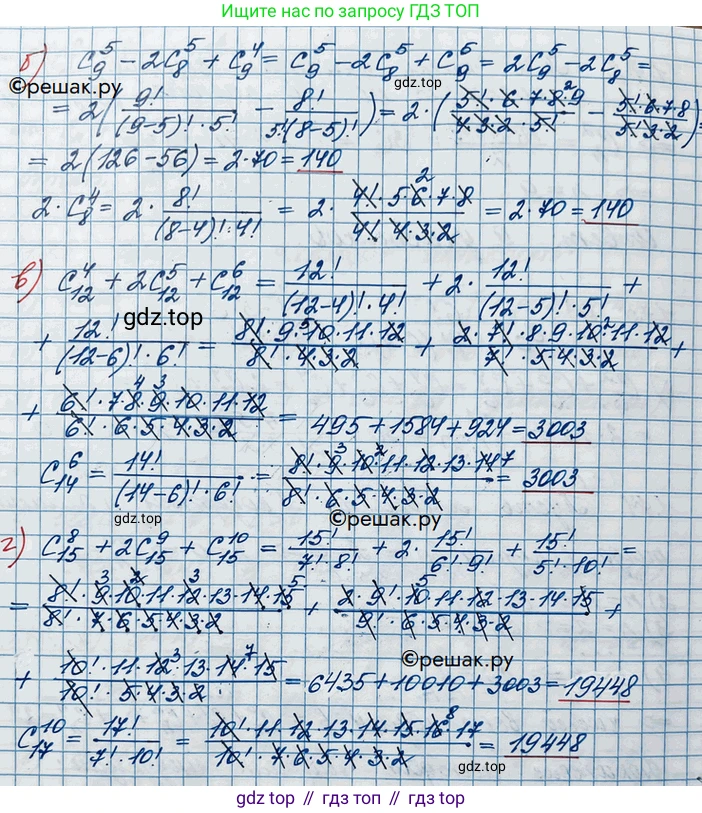 Ищите по запросу ГДЗ ТОП
б) C₉⁵ - 2C₈⁵ + C₉⁴ = C₉⁵ - 2C₈⁵ + C₉⁵ = 2C₉⁵ - 2C₈⁵ =
©решак.ру
= 2(9!/((9-5)!·5!) - 8!/(5!(8-5)!)) = 2·((5!·6·7·8²·9)/(4·3·2·5!) - (5!·6·7·8)/(5!·3·2)) =
= 2(126-56) = 2·70 = 140
2·C₈⁴ = 2·8!/((8-4)!·4!) = 2·(4!·5·6²·7·8)/(4!·4·3·2) = 2·70 = 140
в) C₁₂⁴ + 2C₁₂⁵ + C₁₂⁶ = 12!/((12-4)!·4!) + 2·12!/((12-5)!·5!) +
gdz.top
+ 12!/((12-6)!·6!) = (8!·9·10⁵·11·12)/(8!·4·3·2) + (2·7!·8·9·10²·11·12)/(7!·5·4·3·2) +
+ (6!·7·8⁴·9³·10·11·12)/(6!·6·5·4·3·2) = 495+1584+924 = 3003
C₁₄⁶ = 14!/((14-6)!·6!) = (8!·9³·10²·11·12·13·14⁷)/(8!·6·5·4·3·2) = 3003
gdz.top
©решак.ру
г) C₁₅⁸ + 2C₁₅⁹ + C₁₅¹⁰ = 15!/(7!·8!) + 2·15!/(6!·9!) + 15!/(5!·10!) =
= (8!·9³·10²·11·12³·13·14·15⁵)/(8!·7·6·5·4·3·2) + (2·9!·10⁵·11·12·13·14·15)/(9!·6·5·4·3·2) +
©решак.ру
+ (10!·11·12³·13·14⁷·15)/(10!·5·4·3·2) = 6435+10010+3003 = 19448
C₁₇¹⁰ = 17!/(7!·10!) = (10!·11·12·13·14·15·16⁸·17)/(10!·7·6·5·4·3·2) = 19448
gdz.top
gdz top // гдз топ // gdz top